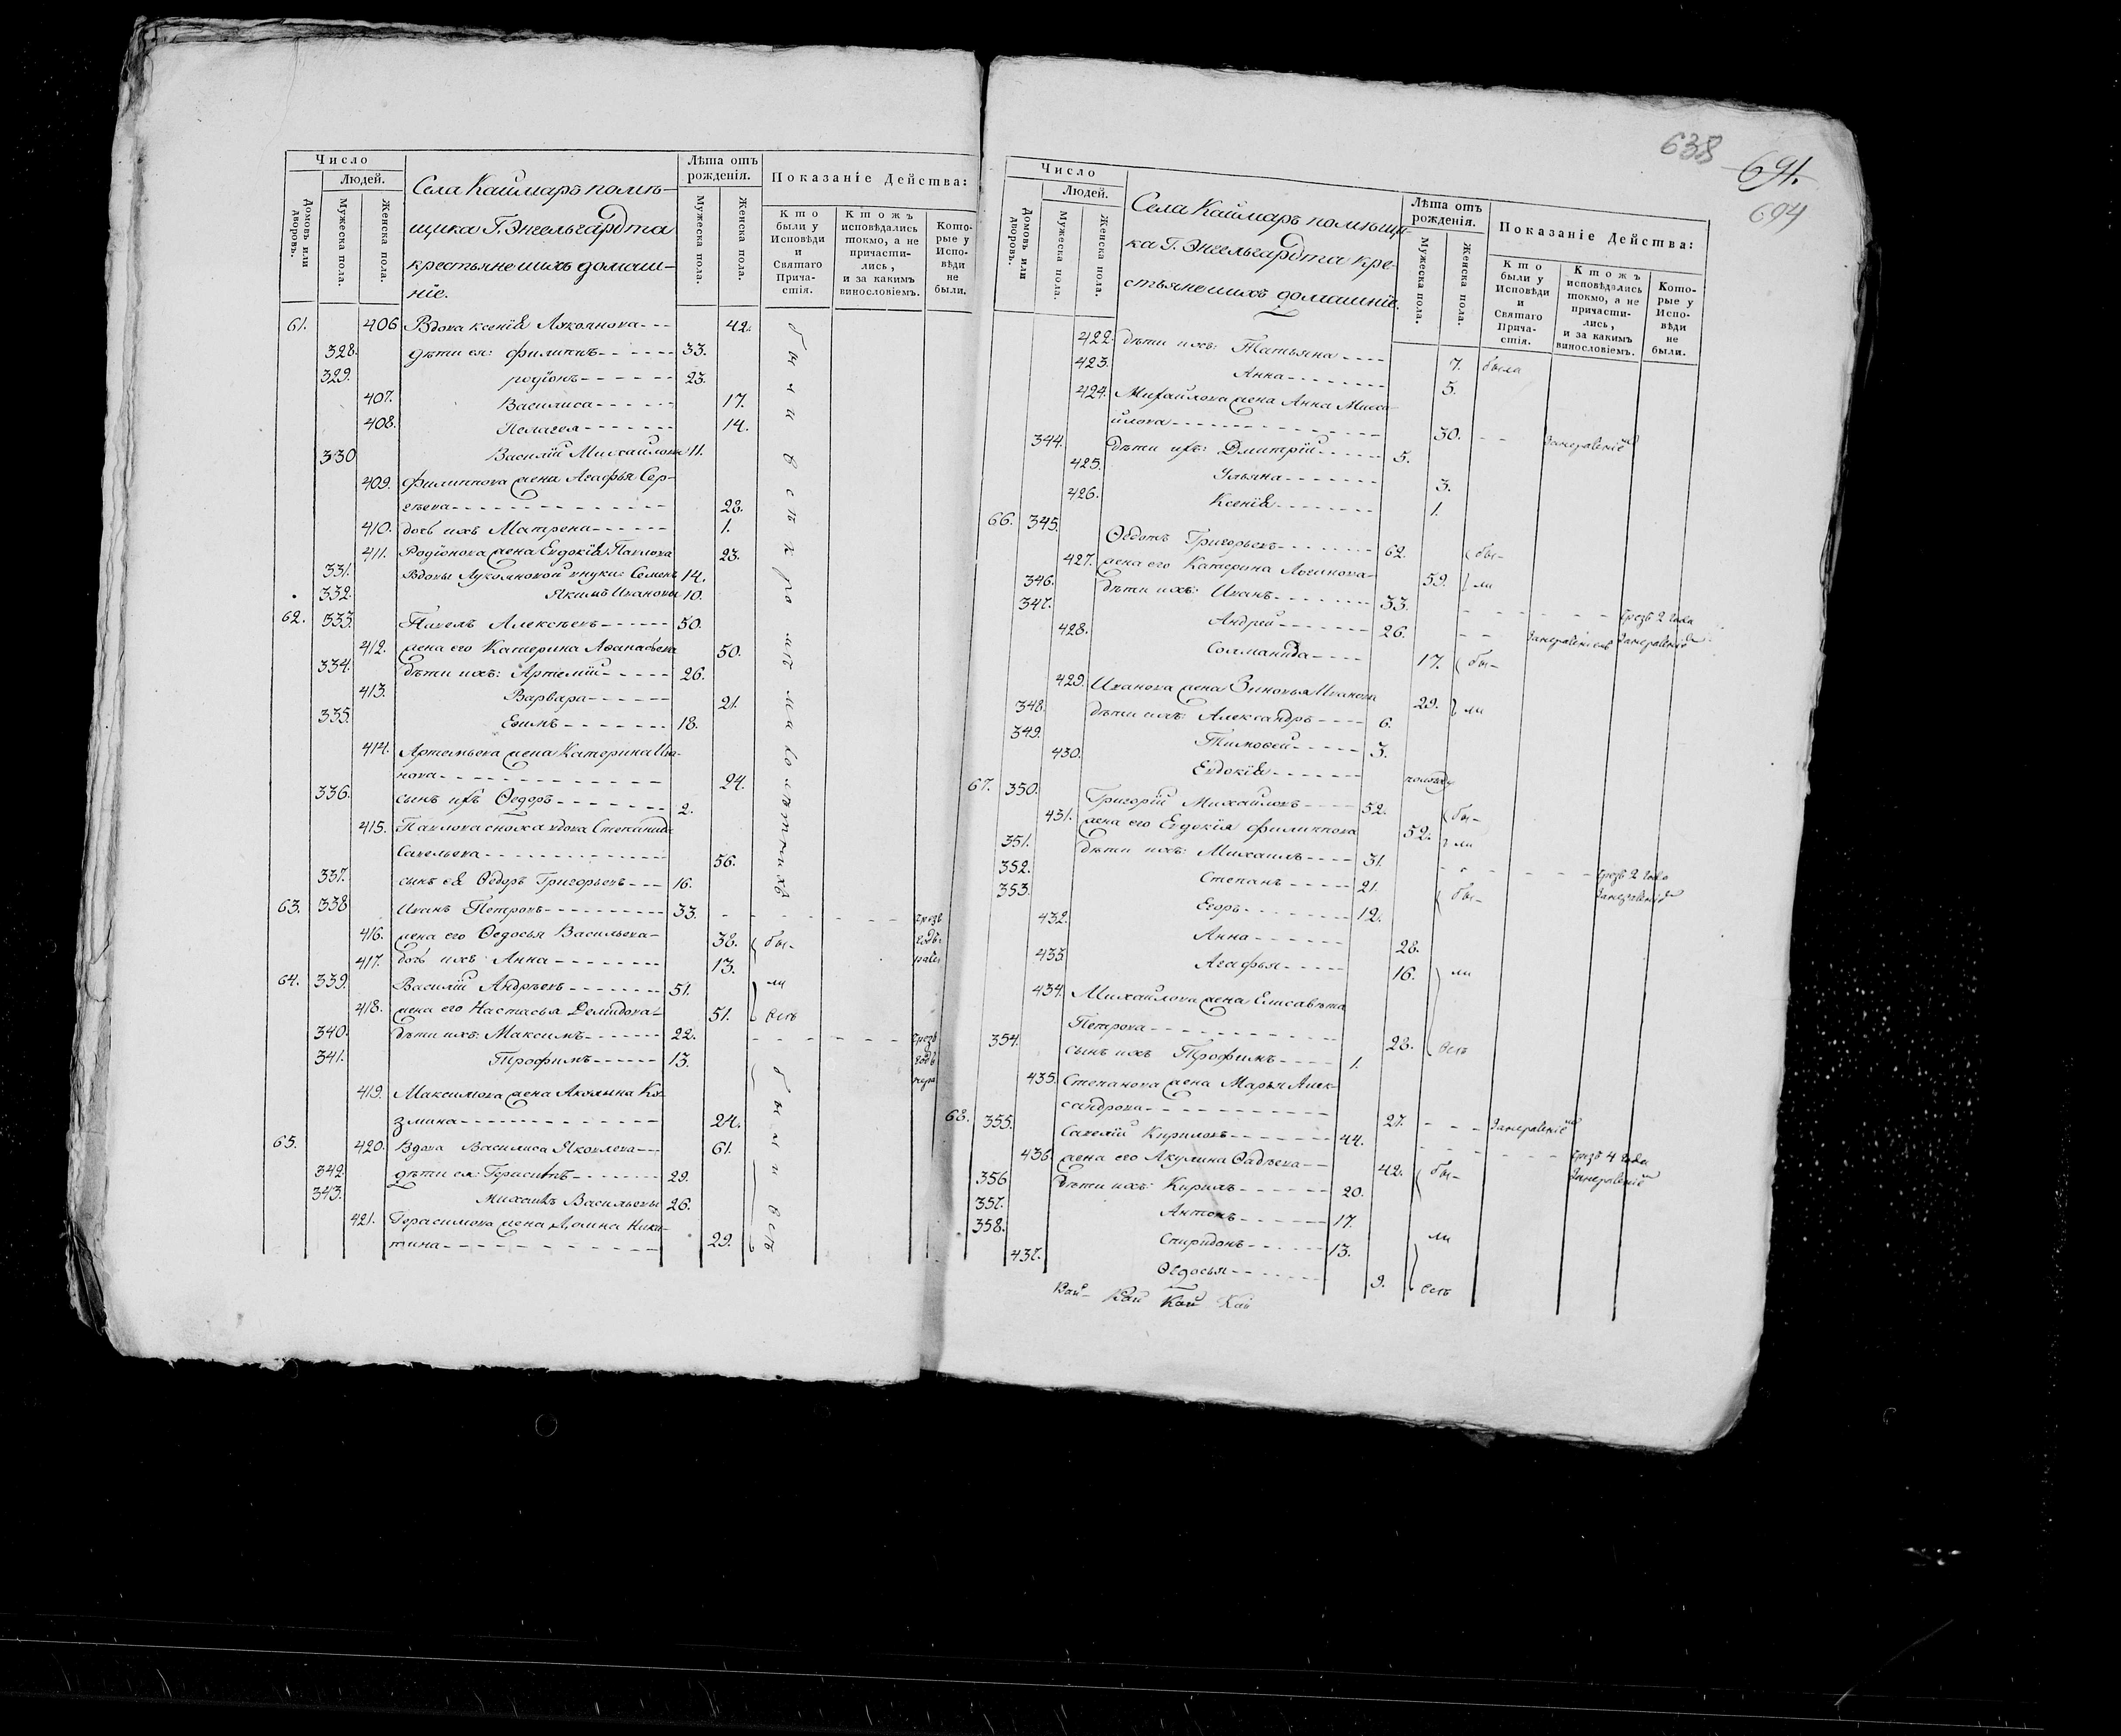 Число
Людей.
Домовъ или дворовъ.
Мужеска пола.
Женска пола.
Села Каймаръ помѣ-
щика Г. Энгельгардта
крестьяне ихъ домаш-
ніе.
Лѣта отъ рожденія.
Мужеска пола.
Женска пола.
Показаніе Действа:
Кто были у Исповѣди и Святаго Прича-стія.
Ктожъ исповѣдались токмо, а не причасти-лись, и за какимъ винословіемъ.
Кото-рые у Испо-вѣди не были.
61. 406 Вдова Ксенія Лукоянова--- 42.
328. дѣти ея: Филиппъ------ 33.
329. Родіонъ------ 23.
407. Василиса------ 17.
408. Пелагея------- 14.
330 Василій Михайловъ 11.
409. Филиппова жена Агафья Сер-
гѣева------------- 28.
410. дочь ихъ Матрена------ 1.
411. Родіонова жена Евдокія Павлова 23.
331. Вдовы Лукояновой внуки: Семенъ 14.
332. Якимъ Ивановы 10.
62. 333. Павелъ Алексѣевъ------ 50.
412. жена его Катерина Аѳанасьева 50.
334. дѣти ихъ: Артемій----- 26.
413. Варвара------- 21.
335. Ефимъ-------- 18.
414. Артемьева жена Катерина Ива-
нова------------- 24.
336. сынъ ихъ Ѳедоръ------- 2.
415. Павлова сноха вдова Степанида
Савельева------------- 56.
337. сынъ ея Ѳедоръ Григорьевъ--- 16.
были всѣ кромѣ малолѣтнихъ
63. 338 Иванъ Петровъ---------- 33. чрезъ
416. жена его Ѳедосья Васильева- 38. бы- годъ
417. дочь ихъ Анна--------- 13.
64. 339. Василій Андрѣевъ-------- 51. ли
418. жена его Настасья Демидова- 51. всѣ
340. дѣти ихъ: Максимъ------ 22. чрезъ
341. Трофимъ------ 13. годъ
419. Максимова жена Акулина Ко-
змина--------------- 24.
65. 420. Вдова Василиса Яковлева--- 61.
342. дѣти ея: Герасимъ------- 29.
343. Михаилъ Васильевы 26.
421. Герасимова жена Домна Ники-
тина-------------- 29.
были всѣ
638
691.
694
Число
Людей.
Домовъ или дворовъ.
Мужеска пола.
Женска пола.
Села Каймаръ помѣщи-
ка Г. Энгельгардта кре-
стьяне ихъ домашніе.
Лѣта отъ рожденія.
Мужеска пола.
Женска пола.
Показаніе Действа:
Кто были у Исповѣди и Святаго Прича-стія.
Ктожъ исповѣдались токмо, а не причасти-лись, и за какимъ винословіемъ.
Кото-рые у Испо-вѣди не были.
422. дѣти ихъ: Татьяна----- 7. была
423. Анна-------- 5.
424. Михайлова жена Анна Миха-
йлова--------------- 30.
344. дѣти ихъ: Дмитрій------ 5.
425. Ульяна-------- 3.
426. Ксенія-------- 1.
66. 345. Ѳедотъ Григорьевъ-------- 62. бы-
427. жена его Катерина Логинова- 59. ли
346. дѣти ихъ: Иванъ-------- 33. чрезъ 2 года
347. Андрей-------- 26.
428. Соломанида---- 17. бы-
429. Иванова жена Зиновья Иванова 29. ли
348. дѣти ихъ: Александръ---- 6.
349. Тимоѳей----- 3.
430. Евдокія------- полгода
67. 350. Григорій Михайловъ----- 52. бы-
431. жена его Евдокія Филиппова 52. ли
351. дѣти ихъ: Михаилъ---- 31. чрезъ 2 года
352. Степанъ----- 21. бы-
353. Егоръ-------- 12.
432. Анна------- 28.
433. Агафья----- 16. ли
434. Михайлова жена Елисавета
Петрова------------ 28. всѣ
354. сынъ ихъ Трофимъ---- 1.
435. Степанова жена Марья Алек-
сандрова------------- 27.
68. 355. Савелій Кириловъ-------- 44. чрезъ 4 года
436. жена его Акулина Ѳадѣева-- 42. бы-
356 дѣти ихъ: Кирилъ------- 20.
357. Антонъ------- 17.
358. Спиридонъ------ 13. ли
437. Ѳедосья------- 9. всѣ
Кай Кай Кай